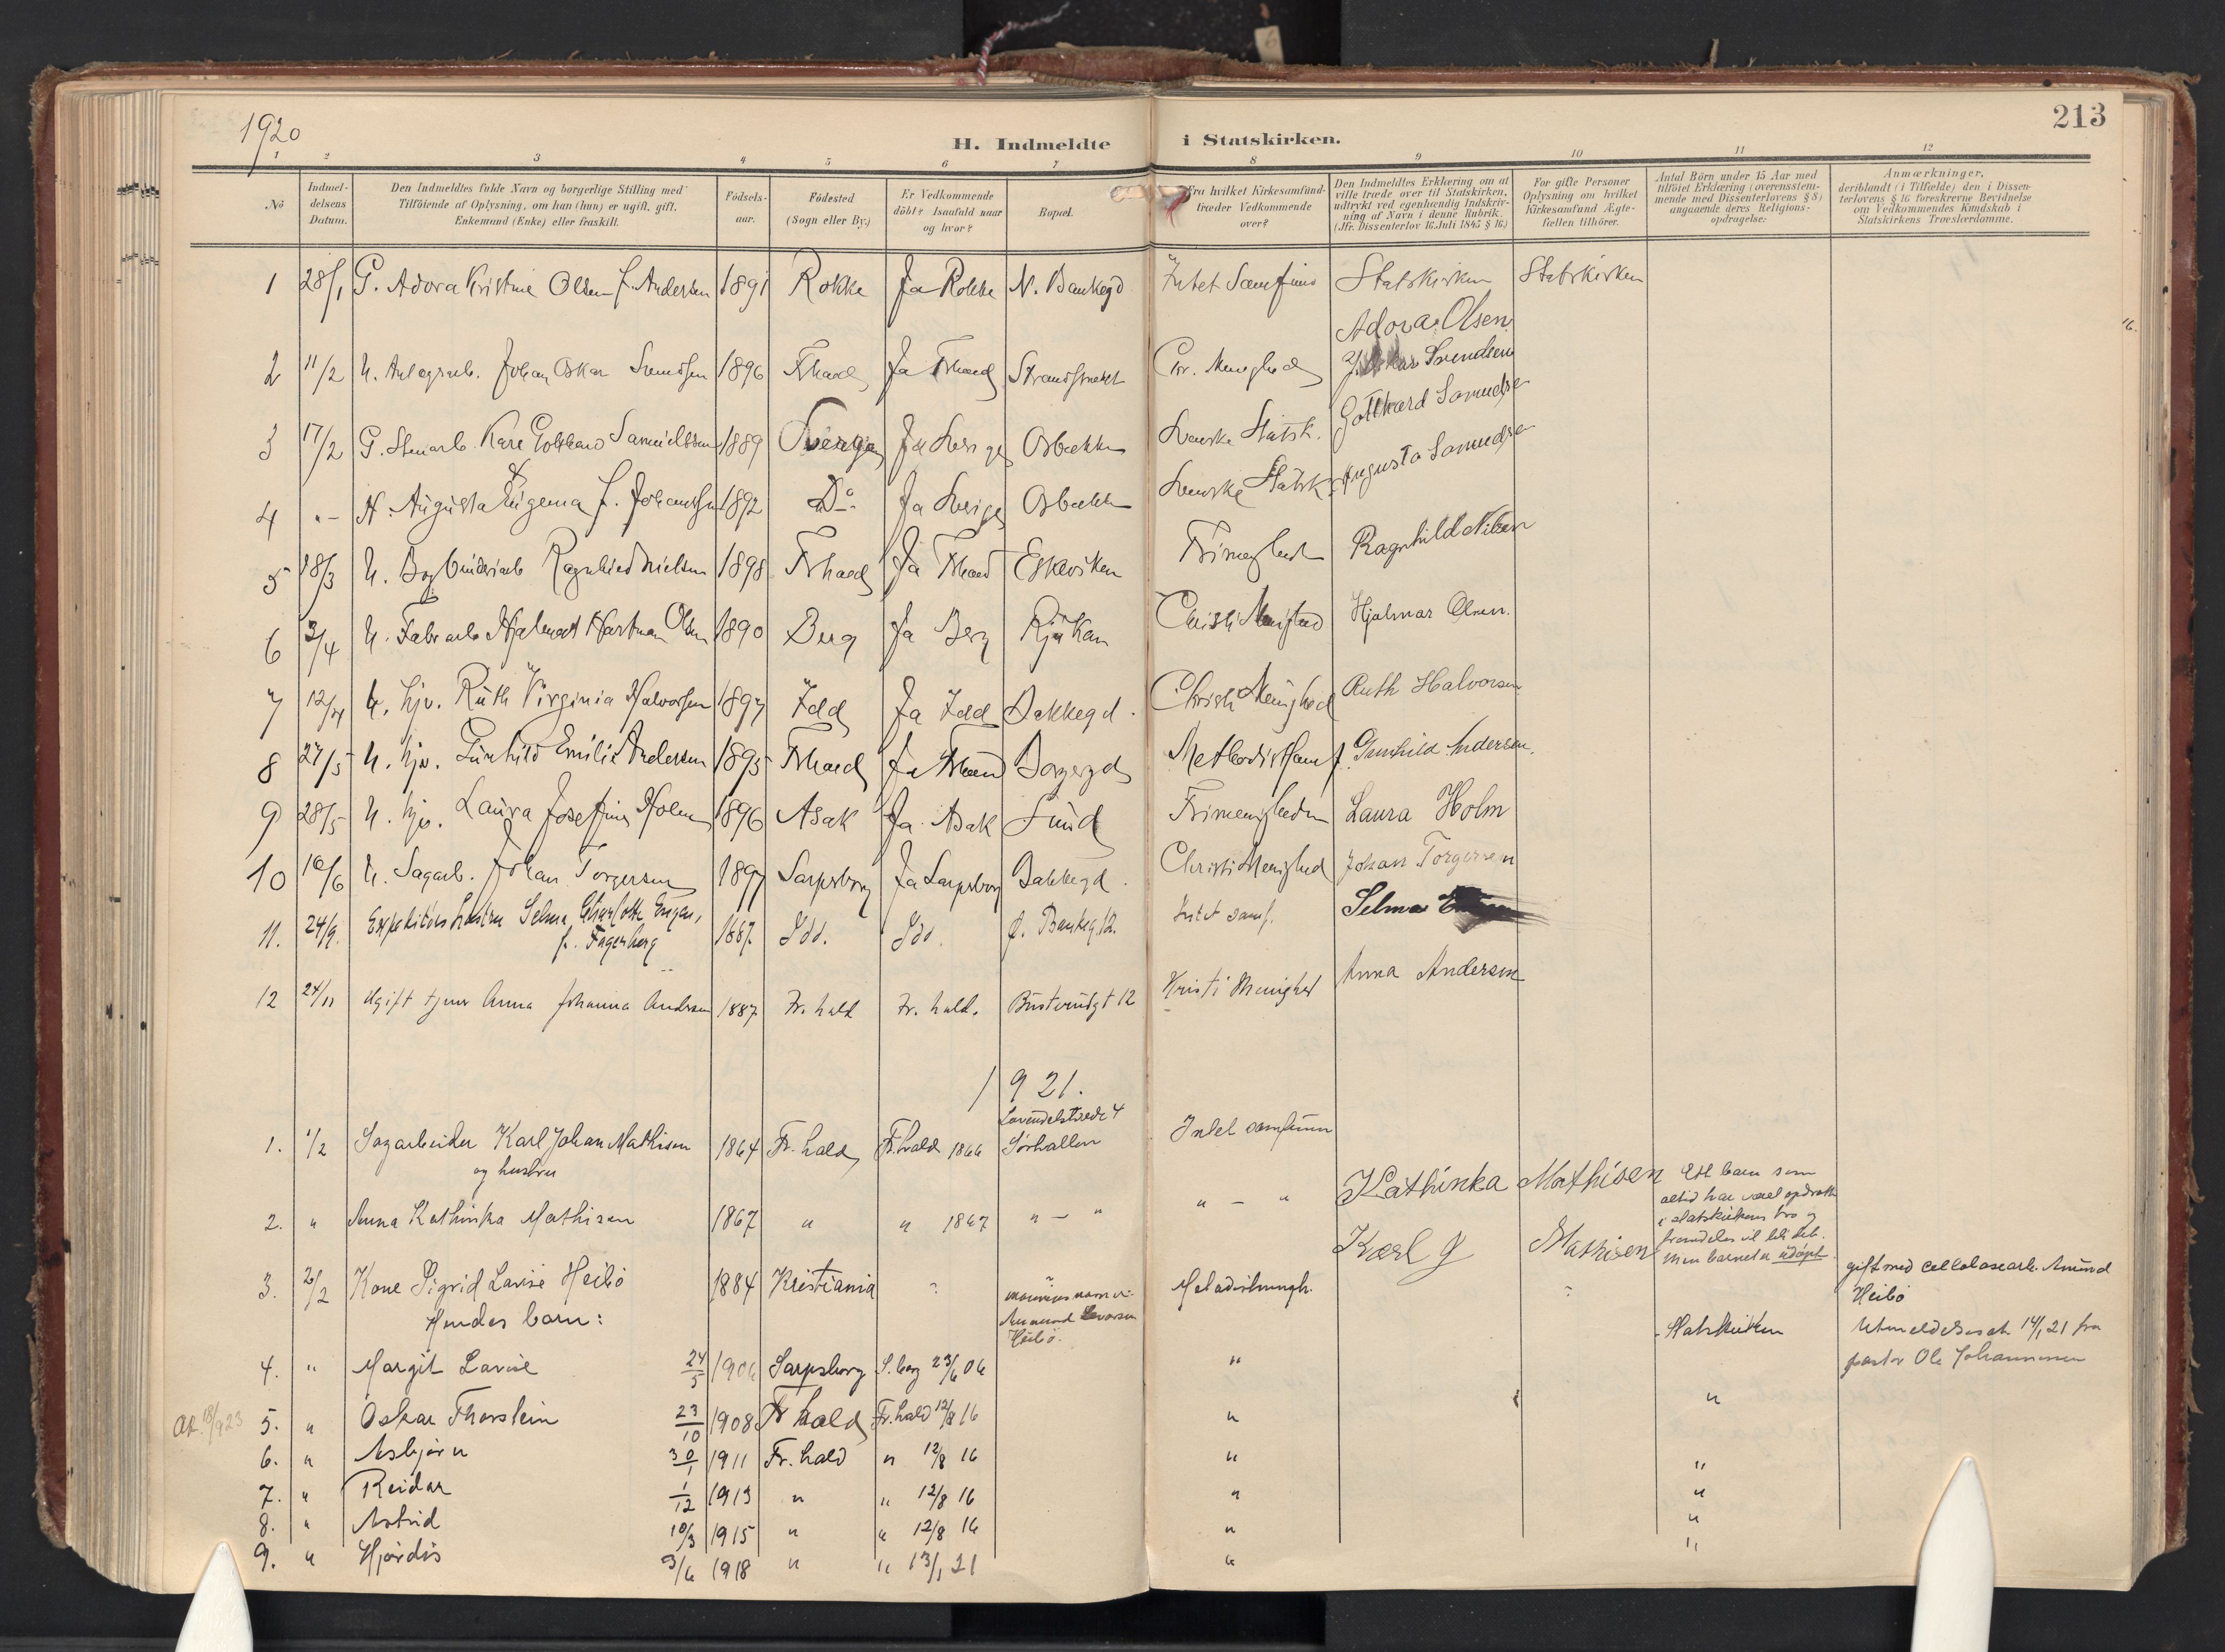 213
1920
H. Indmeldte i Statskirken.
1 2 3 4 5 6 7 8 9 10 11 12
No
Indmel-
delsens
Datum.
Den Indmeldtes fulde Navn og borgerlige Stilling med
Tilföiende af Oplysning, om han (hun) er ugift, gift,
Enkemand (Enke) eller fraskilt.
Födsels-
aar.
Födested
(Sogn eller By.)
Er Vedkommende
döbt? Isaafald naar
og hvor?
Bopæl.
Fra hvilket Kirkesamfund
træder Vedkommende
over?
Den Indmeldtes Erklæring om at
ville træde over til Statskirken,
udtrykt ved egenhændig Indskriv-
ning af Navn i denne Rubrik.
(Jfr. Dissenterlov 16. Juli 1845 § 16.)
For gifte Personer
Oplysning om hvilket
Kirkesamfund Ægte-
fællen tilhörer.
Antal Börn under 15 Aar med
tilföiet Erklæring (overensstem-
mende med Dissenterlovens § 8)
angaaende deres Religions-
opdragelse:
Anmærkninger,
deriblandt (i Tilfælde) den i Dissen-
terlovens § 16 foreskrevne Bevidnelse
om Vedkommendes Kundskab i
Statskirkens Troeslærdomme.
1 28/1 G. Adora Kristine Olsen f. Andersen 1891 Rokke Ja Rokke N. Bankegd Intet Samfund Statskirken Statskirken
Adora Olsen
2 11/2 U. Johan Oskar Svendsen 1896 Fhald Ja Fhald Strandstrædet Chr. Menighed J. Oskar Svendsen
3 17/2 G. Stenarb. Karl Gotthard Samuelsen 1889 Sverige Ja Sverige Osbækken Svenske Statsk. Gotthard Samuelsen
4 - H. Augusta Eugenia f. Johansen 1892 Do Ja Sverige Osbækken Svenske Statsk. Augusta Samuelsen
5 18/3 U. Bogbinderarb Ragnhild Nielsen 1898 Fhald Ja Fhald Eskeviken Frimenighed Ragnhild Nilsen
6 3/4 U. Fabrarb Hjalmar Hartman Olsen 1890 Berg Ja Berg Rjukan Christi Menighed Hjalmar Olsen.
7 12/4 U. hjv. Ruth Virginia Halvorsen 1897 Idd Ja Idd Bakkegd. Christi Menighed Ruth Halvorsen
8 27/5 U. hjv. Gunhild Emilie Andersen 1895 Fhald Ja Fhald Borgergd Methodistsamf. Gunhild Andersen.
9 28/5 U. hjv. Laura Josefine Holm 1896 Asak Ja Asak Sund Frimenigheden Laura Holm
10 10/6 U. Sagarb. Johan Torgersen 1897 Sarpsborg Ja Sarpsborg Bakkegd. Christi Menighed Johan Torgersen
11. 24/9. Expeditörs hustru Selma Charlotte Engen,
f. Fagerberg 1887. Idd. Idd. Ø. Bankeg. 12. Intet samf. Selma
12 24/11 Ugift tjener Anna Johanna Andersen 1887 Fr. hald Fr. hald. Busterudgt 12 Kristi Menighet Anna Andersen
1921.
1. 1/2 Sagarbeider Karl Johan Mathisen 1864 Fr. hald Fr. hald 1864 Lavendelstrede 4
Sørhallen Intet samfunn
og hustru
2. " Anna Kathinka Mathisen 1867 " " 1867 " - " " - " Kathinka Mathisen
Karl J Mathisen
Ett barn som
altid har været opdratt
i statskirkens tro og
fremdeles vil bli det.
men barnet er udöpt.
3. 2/2 Kone Sigrid Lovise Heibö 1884 Kristiania " Metodistmengh. "
mannens navn er
Amund
Heibö.
gift med cellulosearb. Amund
Heibö
Hendes barn: Statskirken Utmeldelsesat. 14/1 21 fra
pastor Ole Johannesen
4. " Margit Lovise 24/5 1906 Sarpsborg S.borg 23/6 06 "
at 18/923 5. " Oskar Thorstein 23/10 1908 Fr hald Fr. hald 12/8 16 " "
6. " Asbjørn 30/1 1911 Fr. hald " 12/8 16 " "
7. " Reidar 1/12 1913 " " 12/8 16 " "
8. " Astrid 10/3 1915 " " 12/8 16 " "
9. " Hjördis 3/6 1918 " " 13/1 21 " "